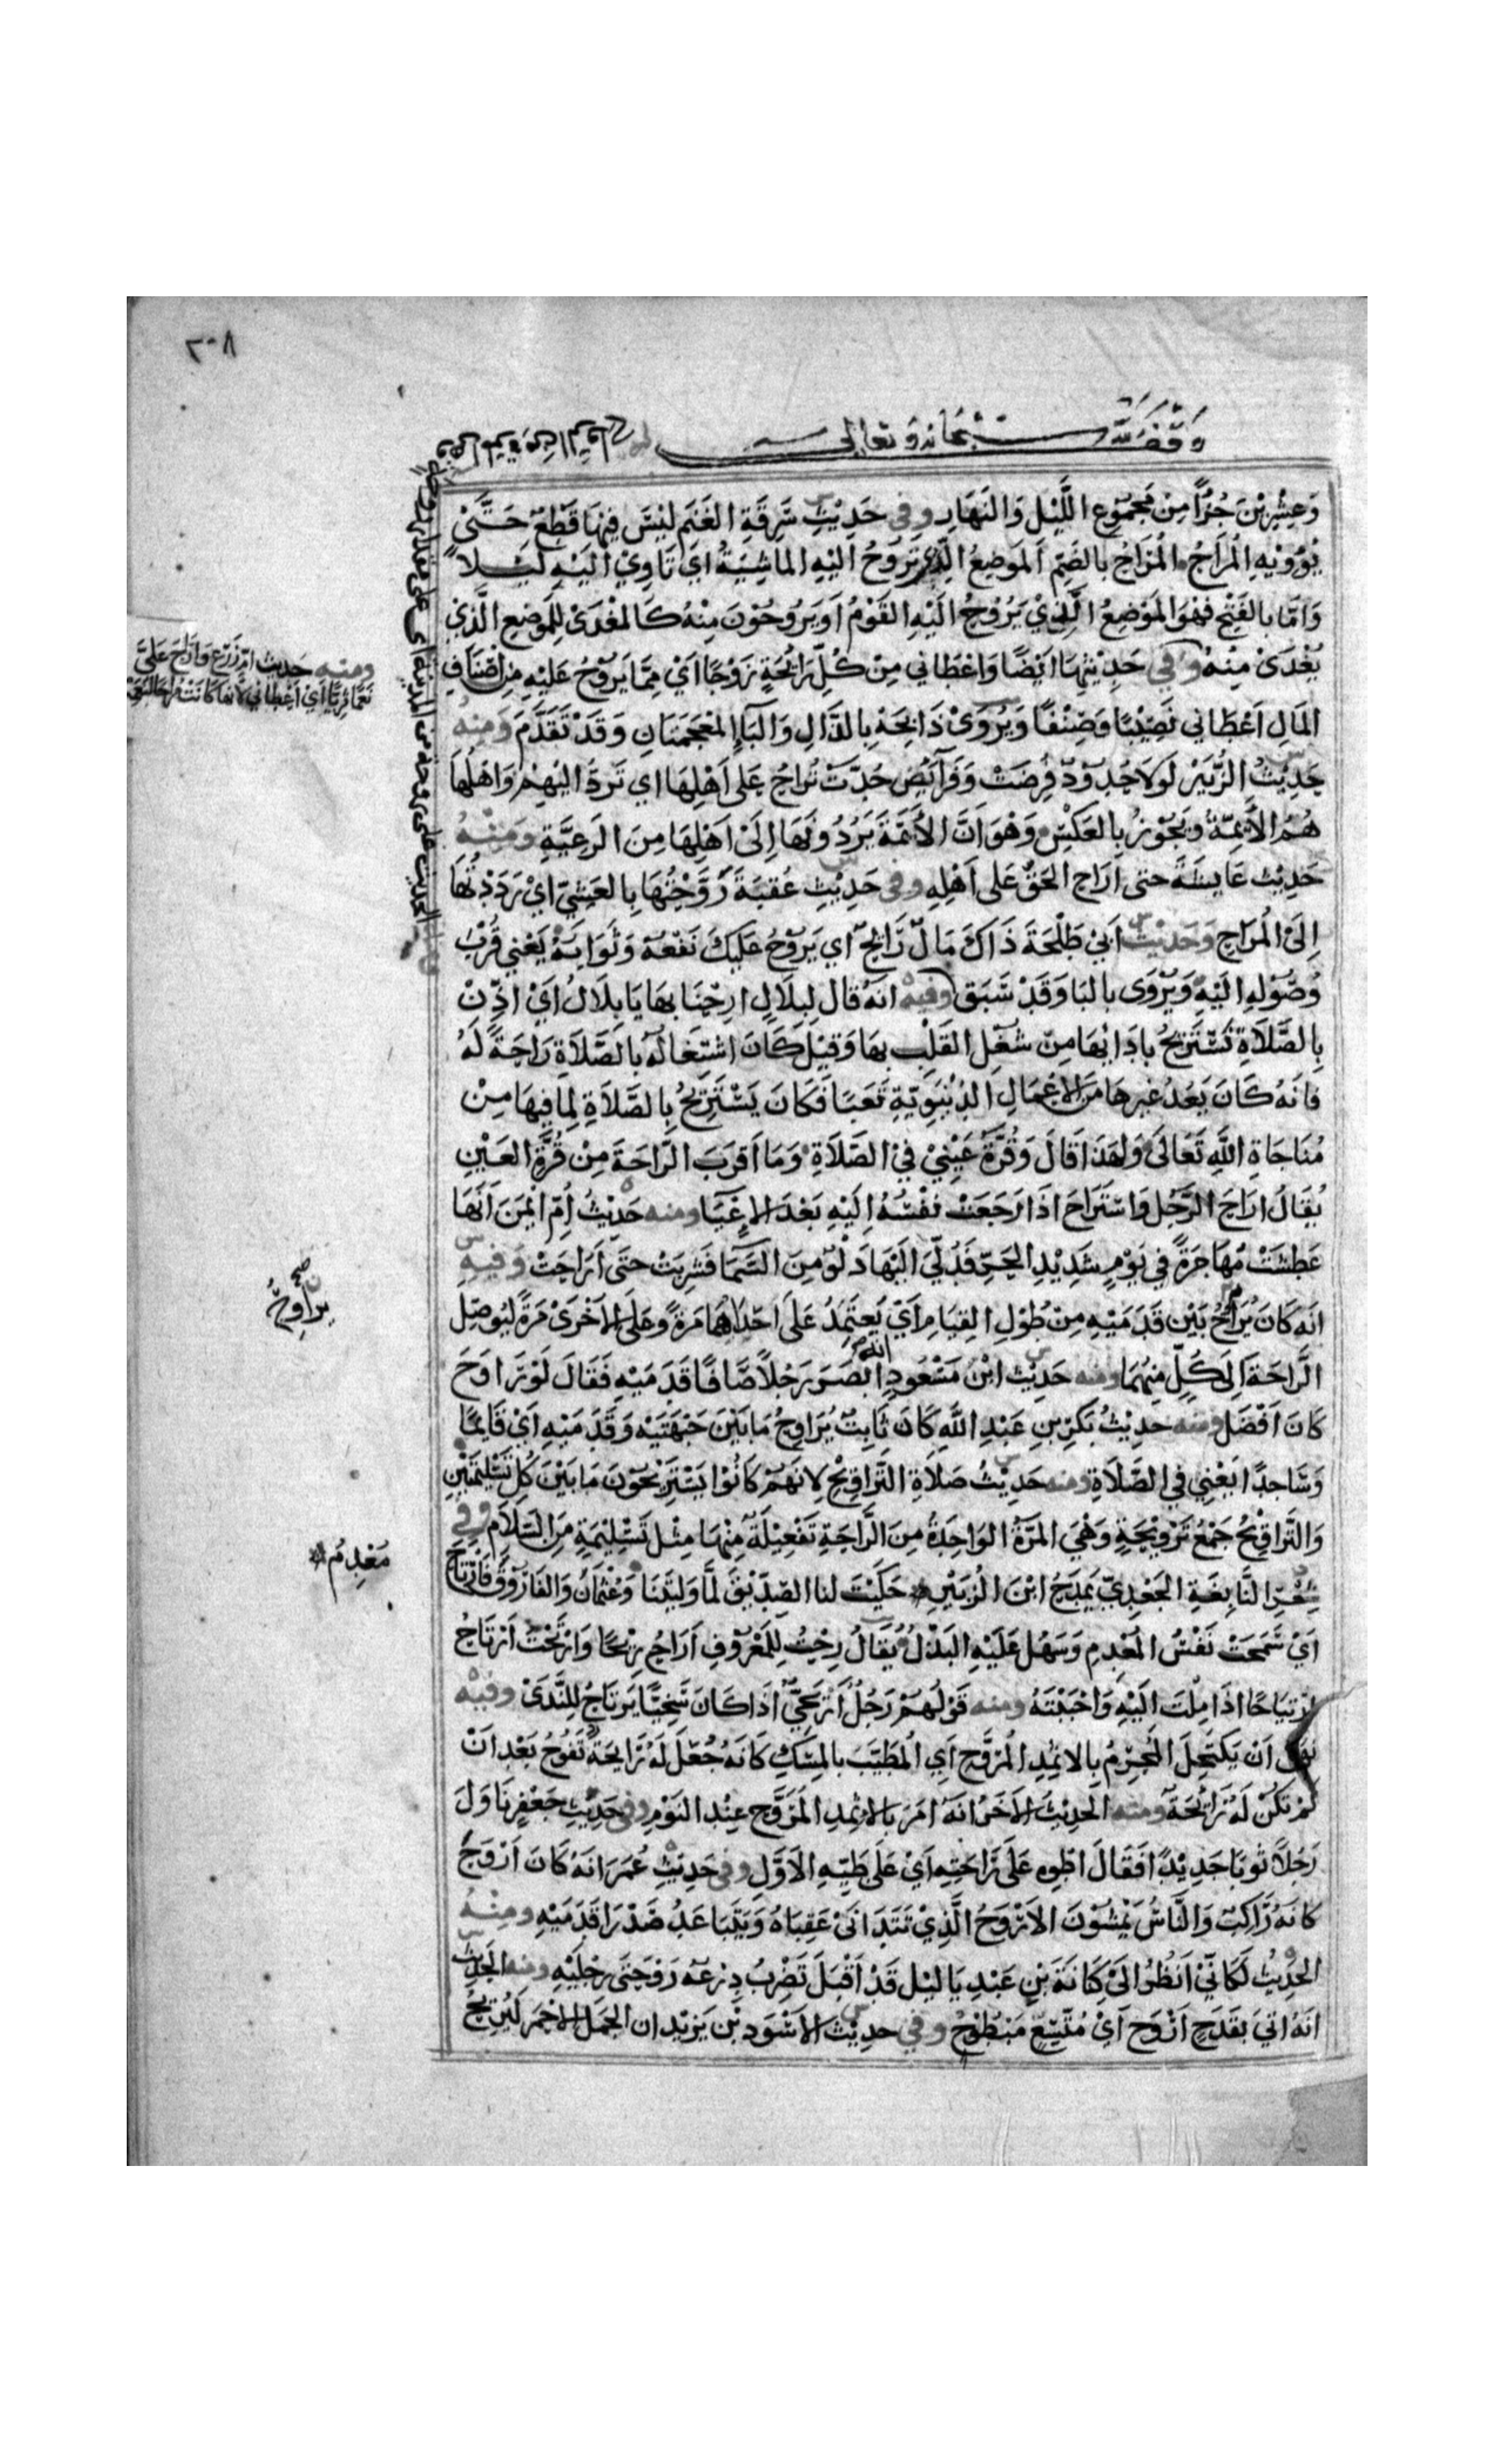 ٢٠٨
وقف لله سبحانه وتعالى
وَعِشْرِيْنَ جُزْأً مِن مَجْمُوْعِ اللَّيْلِ وَالنَهَارِ وفي حَدِيْثِ سَرِقَةِ الغَنَم لَيْسَ فِيْهَا قَطْعٌ حَتَّىْ
يُؤوِيْهِ الْمُرَاحُ الْمُرَاحُ بالضَمِّ المَوضِعُ الَّذِي تَرُوحُ اليْهِ الماشِيَةُ اي تَاوِيْ الَيْهِ لَيْلاً
وَامَّا بالفَتْحِ فهْوَ المَوْضِعُ الَّذِيْ يَرُوْحُ الَيْهِ القَوْمُ اَو يَرُوحُوْنَ مِنْهُ كَالمَغْدَىْ لِلمَوضِعِ الَّذِيْ
يُغْدَىْ مِنْهُ وفي حَدِيْثِهَا ايْضًا وَاعْطَاني مِنْ كُلِّ رَائِحَةٍ زَوْجًا اَيْ مِمَّا يَرُوْحُ عَلَيْهِ مِنْ اَصْنَافِ
المَالِ اَعْطَانى نَصِيْبًا وَصِنْفًا وَيُرْوَىْ ذَابِحَةٍ بِالذَّالِ وَالبَاءِ المُعْجَمَتَانِ وَقَدْ تَقَدَّمَ وَمِنهُ
حَدِيْثُ الزُّبَيْر لَولاَ حُدُوْدٌ فُرِضَتْ وَفَرَآئِضُ حُدَّتْ تُرَاحُ عَلَى اَهْلِهَا اي تُرَدُّ اليْهِمْ وَاهْلُهَا
هُمُ الاَئِمَّةُ ويَجُوْزُ بِالعَكْسِ وَهْوَ انَّ الاَئِمَّةَ يَرُدُّونَهَا اِلَىْ اَهْلِهَا مِنَ الرَعِيَّةِ ومنْهُ
حَدِيْث عَايِشَةَ حتى اَرَاحَ الحَقَّ عَلى اَهْلِهِ وفي حَدِيْثِ عُقبَةَ رَوَّحْتُهَا بِالعَشِيّ اَيْ رَدَدْتُهَا
اِلىَ الْمُرَاحِ وَحَدِيْثُ اَبيْ طَلْحَةَ ذَاكَ مَالٌ رَائِحٌ اي يَرُوْحُ عَلَيكَ نَفْعُهُ وَثَوَابُهُ يَعْني قُرْبَ
وُصُوْلِهِ الَيْهِ وَيُرْوَى بالبَا وَقَدْ سَبَقَ وفيه انَهُ قَالَ لِبلاَلٍ ارِحْنَا بهَا يَا بِلاَلُ اَيْ اَذِّنْ
بِالصَّلاَةِ نَسْتَرِيْحُ بادَائِهَا مِنْ شُغْلِ القَلْبِ بهَا وَقِيْلَ كَانَ اشْتِغَالُهُ بالصَّلاَةِ رَاحَةً لَهُ
فَانَهُ كَانَ يَعُدُّ غيرهَا مِنَ الاعْمَالِ الدُنْيَوِيَّةِ تَعَبًا فَكَانَ يَسْتَرِيْحُ بِالصَّلاَةِ لِمَا فِيهَا مِنْ
مُنَاجَاةِ اللَّهِ تَعَالَى وَلهَذَا قَالَ وَقُرَّةُ عَيْنِيْ فيْ الصَّلاَةِ وَمَا اَقْرَبَ الرَّاحَةَ مِنْ قُرَّةِ العَيْنِ
يُقَالُ ارَاحَ الرَّجُل وَاسْتَرَاحَ اذَا رَجَعَتْ نَفْسُهُ اِلَيْهِ بَعْدَ الاِعْيَا ومنه حَدِيْثُ اُمِّ ايْمَنَ اَنهَا
عَطِشَتْ مُهَاجِرَةً في يَوْمٍ شَدِيْدِ الحَرِّ فَدُلِّيَ الَيْهَا دَلْوٌ مِنَ السَّمَا فَشَرِبَتْ حتَى اَرَاحَتْ وَفيهِ
انَهُ كَانَ يُرَاوِحُ بَيْن قَدَمَيْهِ مِنْ طُوْلِ القِيَامِ اَيْ يَعتَمِدُ عَلَى احْدَاهُمَا مَرَةً وَعَلَى الاخْرَىْ مَرَةً لِيُوصِلَ
الرَّاحَةَ اِلَى كُلٍّ مِنهُمَا ومنه حَدِيْث ابْن مَسْعُودٍ انه ابْصَرَ رَجُلاً صَافًّا قَدَمَيْهِ فَقَالَ لَوْ رَاوَحَ
كَانَ اَفْضَل ومنه حديْثُ بَكرِ بنِ عَبْدِ اللَّهِ كَانَ ثَابِتٌ يُرَاوِحُ مَا بَيْنَ جَبْهَتِهِ وَقَدَمَيْهِ اَيْ قَايِمًا
وَسَاجدًا يَعْنِي في الصَّلاَةِ ومنه حَدِيْثُ صَلاَةِ التَّرَاوِيْحِ لانَهُمْ كَانُوْا يَسْتَرِيْحُوْنَ مَا بَيْنَ كُلِّ تَسْلِيْمَتَيْنِ
وَالتَّرَاوِيْحُ جَمْعُ تَرْوِيْحَةٍ وَهْيَ المَرَّةُ الوَاحِدَةُ مِنَ الرَّاحَةِ تَفْعِيْلَةٌ مِنْهَا مِثْلَ تَسْلِيْمَةٍ مِنَ السَّلاَمِ وفي
شِعْرِ النَّابِغَةِ الجَعْدِيّ يَمْدَحُ ابْنَ الزُبَيْرِ حَكَيْتَ لنا الصِّدِّيْقَ لَمَّا وَلِيْتَنَا وَعُثْمَانَ وَالفَارُوْقَ فَارْتَاحَ
اَيْ سَمَحَتْ نَفْسُ المُعْدِمِ وَسَهُلَ عَلَيْهِ البَذْلُ يُقَالُ رِحْتُ لِلمَعْرُوْفِ اَرَاحُ رِيْحًا وَارْتَحْتُ اَرْتَاحُ
ارْتِيَاحًا اذَا مِلْتَ الَيْهِ وَاحْبَبْتَهُ ومنه قَوْلُهُمْ رَجُلٌ اَرْيَحِيٌّ اذَا كَانَ سَخِيًّا يَرْتَاحُ لِلنَّدَىْ وفيه
نَهَى اَنْ يَكْتَحِلَ المُحْرِمُ بِالاثْمِدِ الْمُرَوَّحِ اَيِ الْمُطَيَّبِ بالمِسْكِ كَانَهُ جُعِلَ لَهُ رَايِحَةٌ تَفُوْحُ بَعْدَ انْ
لَمْ تَكُنْ لَهُ رَائِحَةٌ ومنه الحَدِيْثُ الاَخَرُ انَهُ امَرَ بِالاِثْمِدِ المُرَوَّحِ عِنْدَ النَوْمِ وفي حَدِيْثِ جَعْفَرٍ نَاوَلَ
رَجُلاً ثَوبًا جَدِيْدًا فَقَالَ اطْوِهِ عَلَى رَاحَتِهِ اَيْ عَلَى طَيِّهِ الاَوَّلِ وفي حَدِيْثِ عُمَرَ انَهُ كَانَ اَرْوَحَ
كانَهُ رَاكِبٌ وَالنَّاسُ يَمْشُوْنَ الاَرْوَحُ الَّذِيْ تَتَدَانَىْ عَقِبَاهُ وَيَتَبَاعَدُ صَدْرَا قَدَمَيْهِ ومِنْهُ
الحَدِيْثُ لَكَانِّيْ اَنْظُرُ الىَ كِنَانَةَ بْنِ عَبْدِ يَالِيْل قَدْ اَقْبَلَ تَضْرِبُ دِرْعُهُ رَوْحَتَىْ رِجْلَيْهِ ومنه الحَدِيْثُ
انَهُ اتيَ بقَدَحٍ اَرْوَحَ اَيْ مُتَّسِعٍ مَبْطُوْحٍ وفي حدِيْثِ الاَسْوَدِ بْن يَزِيْد ان الجَمَل الاحْمَر لَيُرِيْحُ
ومنه حَديث امّ زَرْعٍ وَارَاحَ عَلَيَّ
نَعَمًا ثَرِيًّا اَيْ اَعْطَاني لانهَا كانَتْ
يراوح صح
مَعْدِمٌ